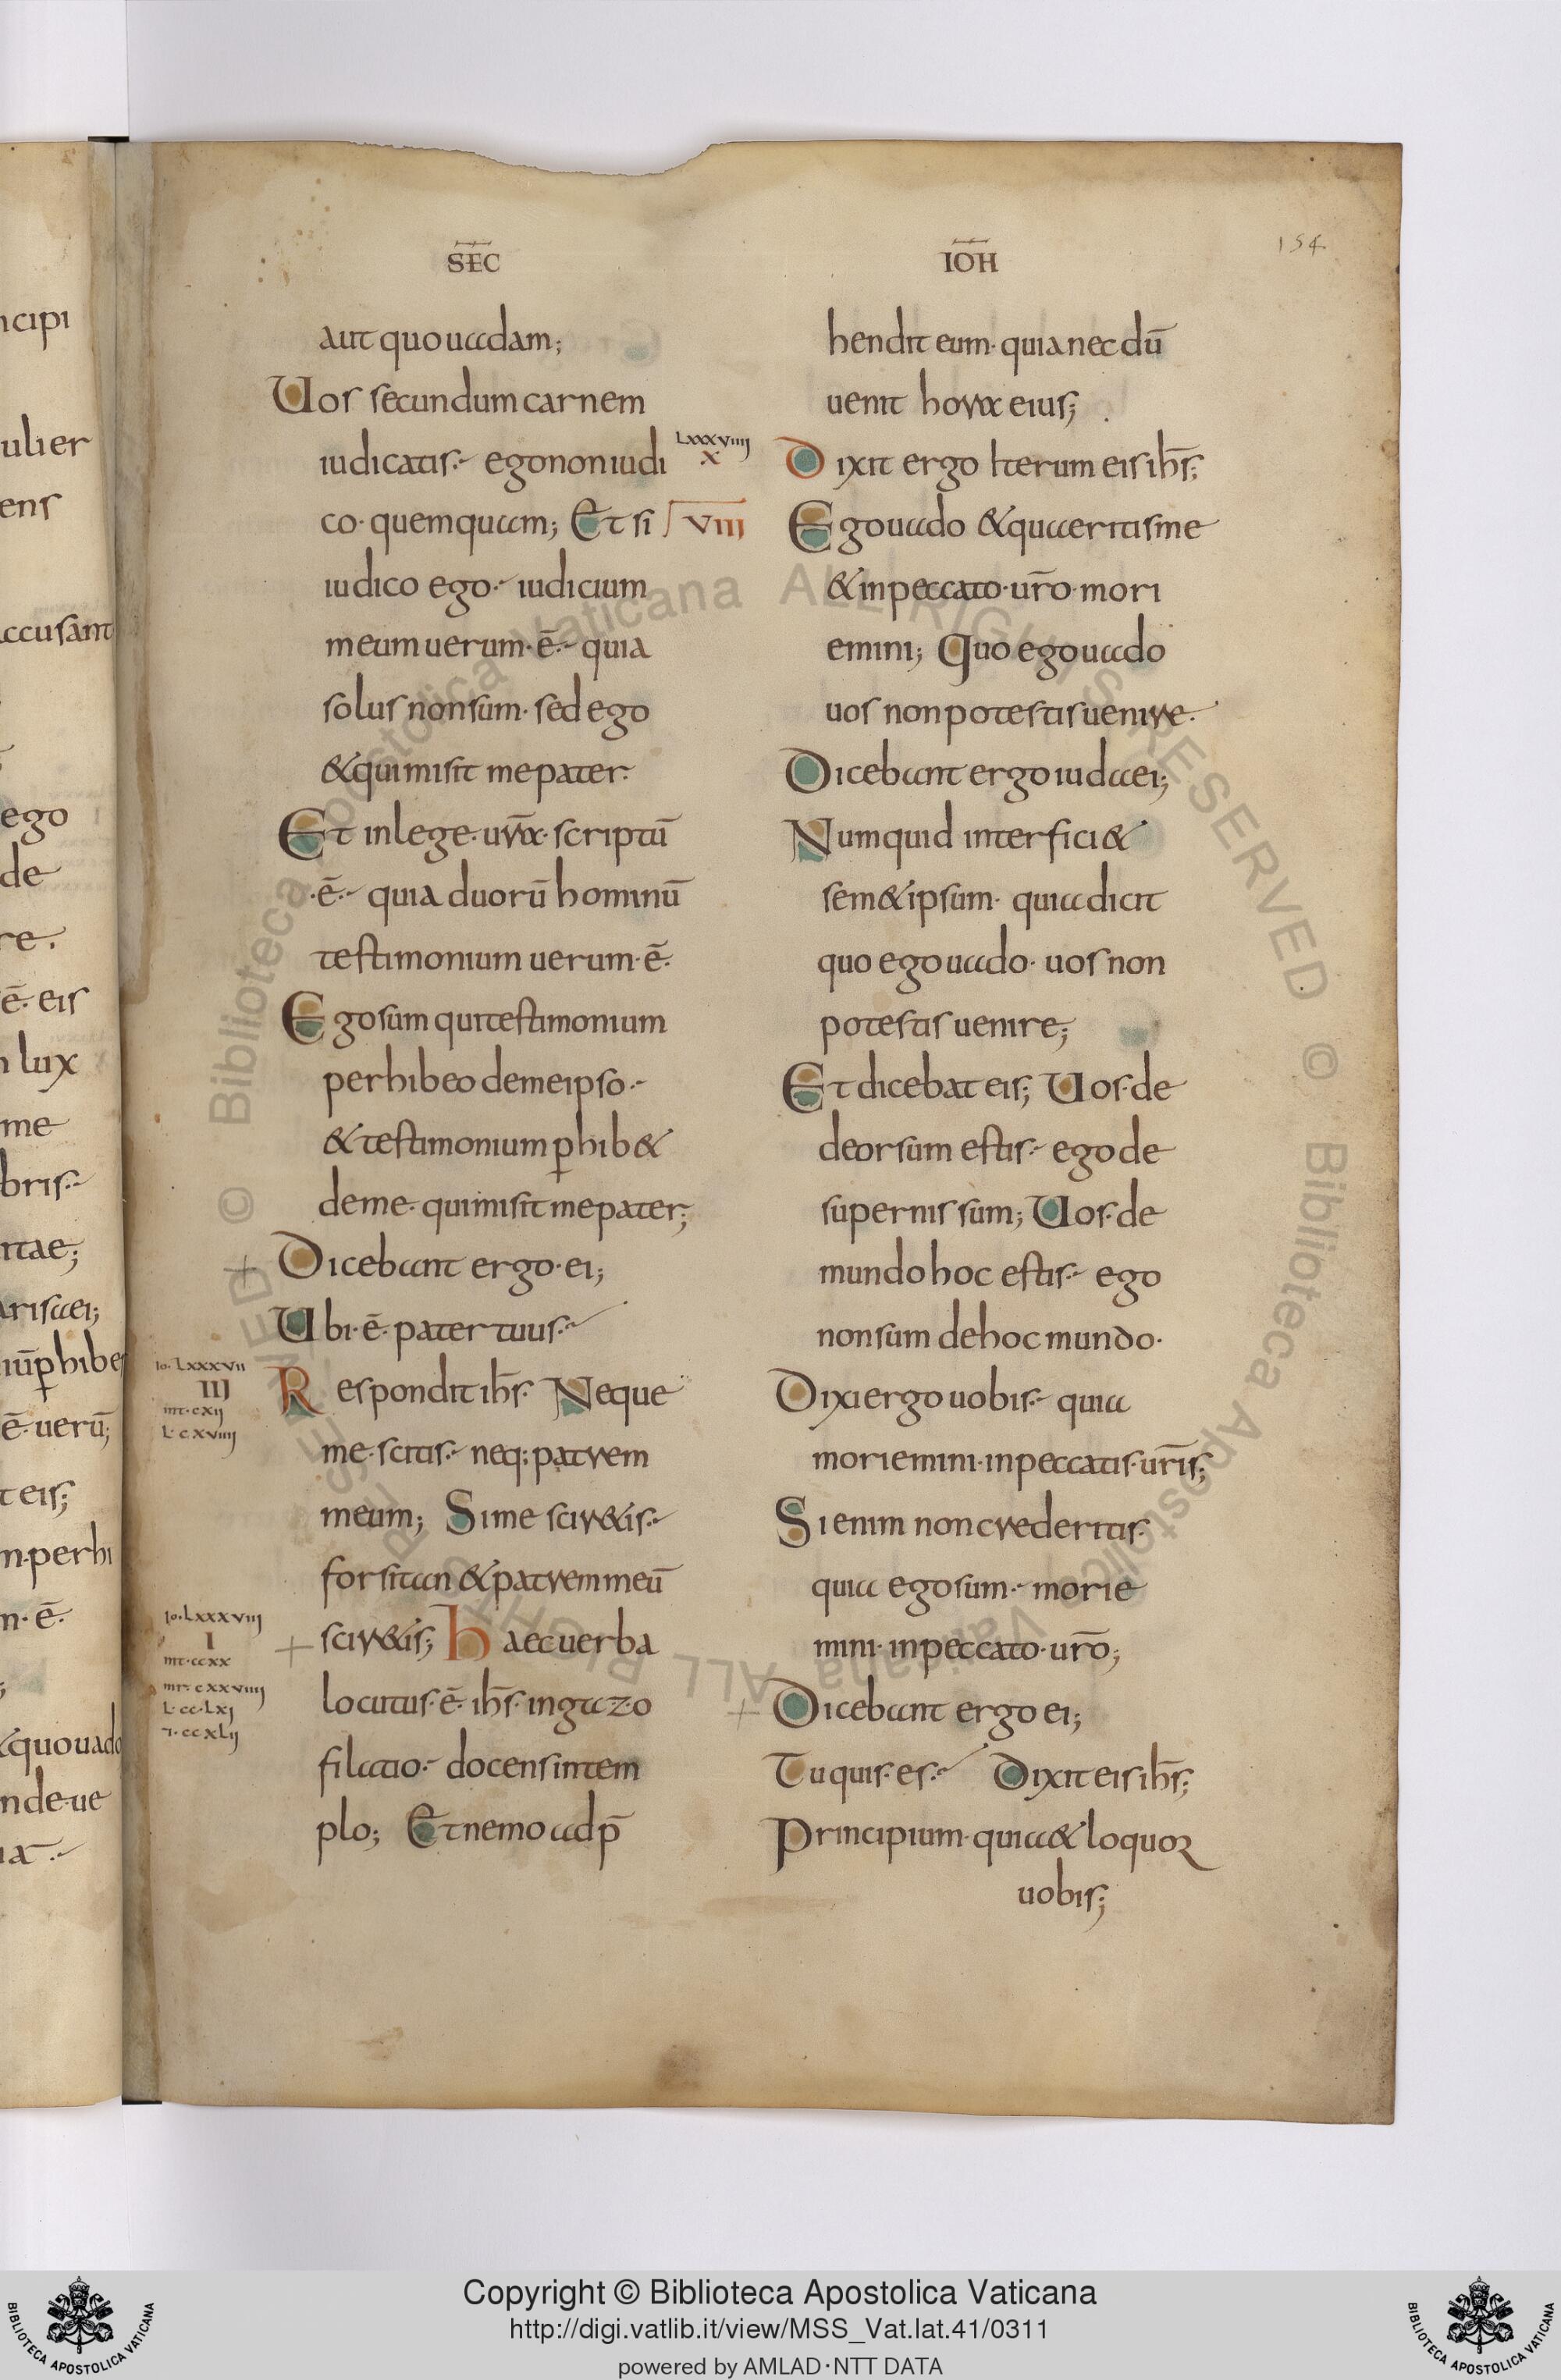 SEC̅
IO̅H
154
aut quo uadam;
Uos secundum carnem
iudicatis· ego non iudi
co· quemquam; Et si
iudico ego· iudicium
meum uerum· ē· quia
solus non sum· sed ego
& qui misit me pater·
Et in lege· ur̄a· scriptū
·ē· quia duorū hominū
testimonium uerum· ē·
Ego sum qui testimonium
perhibeo de me ipso·
& testimonium ꝑhib&
de me· qui misit me pater;
+ Dicebant ergo· ei;
Ubi· ē· pater tuus·
Respondit ihs̄· Neque
me· scitis· neq: patrem
meum; Si me scir&is·
forsitan & patrem meū
+ scir&is; Haec uerba
locutus· ē· ihs̄· in gazo
filatio· docens in tem
plo; Et nemo adp̄
Io·Lxxxvii
III
mt·cxij
L·cxviiij
Io·Lxxxviiij
I
mt·ccxx
mr·cxxviiij
L·cc·Lxj
I·ccxLij
hendit eum· quia nec dū
uenit hora eius;
Lxxxviiij
x
Dixit ergo Iterum eis ihs̄;
VIII
Ego uado & quaeritis me
& in peccato· ur̄o· mori
emini; Quo ego uado
uos non potestis uenire·
Dicebant ergo iudaei;
Numquid interfici&
sem&ipsum· quia dicit
quo ego uado· uos non
potestis uenire;
Et dicebat eis; Uos· de
deorsum estis· ego de
supernis sum; Uos· de
mundo hoc estis· ego
non sum de hoc mundo·
Dixi ergo uobis· quia
moriemini· in peccatis· ur̄is;
Si enim non credertis·
quia ego sum· morie
mini· in peccato· ur̄o;
+ Dicebant ergo ei;
Tu quis· es· Dixit eis ihs̄;
Principium· quia & loquor
uobis;
ncipi
ulier
ens
accusant
ego
de
re·
ē· eis
lux
me
bris·
itae;
arisaei;
iūꝑhibe
ē· uerū;
t eis;
m·perhi
m·ē·
& quo uado
nde·ue
Biblioteca Apostolica Vaticana ALL RIGHTS RESERVED ©
Biblioteca Apostolica Vaticana ALL RIGHTS RESERVED ©
Copyright © Biblioteca Apostolica Vaticana
http://digi.vatlib.it/view/MSS_Vat.lat.41/0311
powered by AMLAD·NTT DATA
BIBLIOTECA APOSTOLICA VATICANA
BIBLIOTECA APOSTOLICA VATICANA